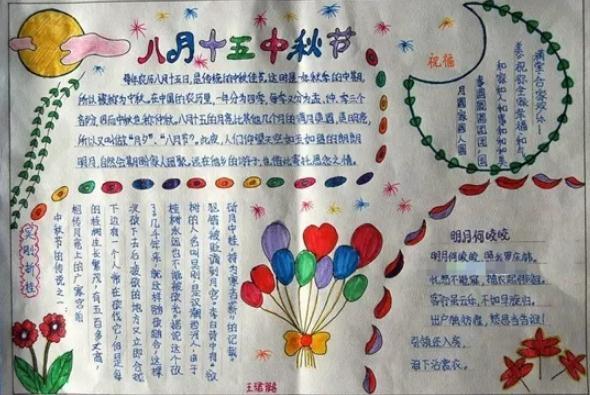 八月十五中秋节
每年农历八月十五日,是传统的中秋佳节。这时是一年秋季的中期,
所以被称为中秋。在中国的农历里,一年分为四季,每季又分为孟、仲、季三个
部分,因而中秋也称仲秋。八月十五的月亮比其他几个月的满月更圆,更明亮,
所以又叫做“月夕”,“八月节”。此夜,人们仰望天空如玉如盘的朗朗
明月,自然会期盼家人团聚。远在他乡的游子,也借此寄托思念之情。
祝福
满堂合家欢乐—
恭祝你全家幸福和美
和家和人和事和和和美
月圆家圆人圆
吴刚折桂
中秋节的传说之一:
相传月宫上的广寒宫前
的桂树生长繁茂,有五百多丈高,
下边有一个人常在砍伐它,但是每
次砍下去后,被砍的地方又立即合拢
了。几千年来,就这样随砍随合,这棵
桂树永远也不能被砍光。据说这个砍
树的人名叫吴刚,是汉朝西河人,由于
犯错被贬谪到月宫。李白诗中有“欲
斫月中桂,持为寒者薪”的记载。
明月何皎皎
明月何皎皎,照我罗床帏。
忧愁不能寐,揽衣起徘徊。
客行虽云乐,不如早旋归。
出户独彷徨,愁思当告谁!
引领还入房,
泪下沾裳衣。